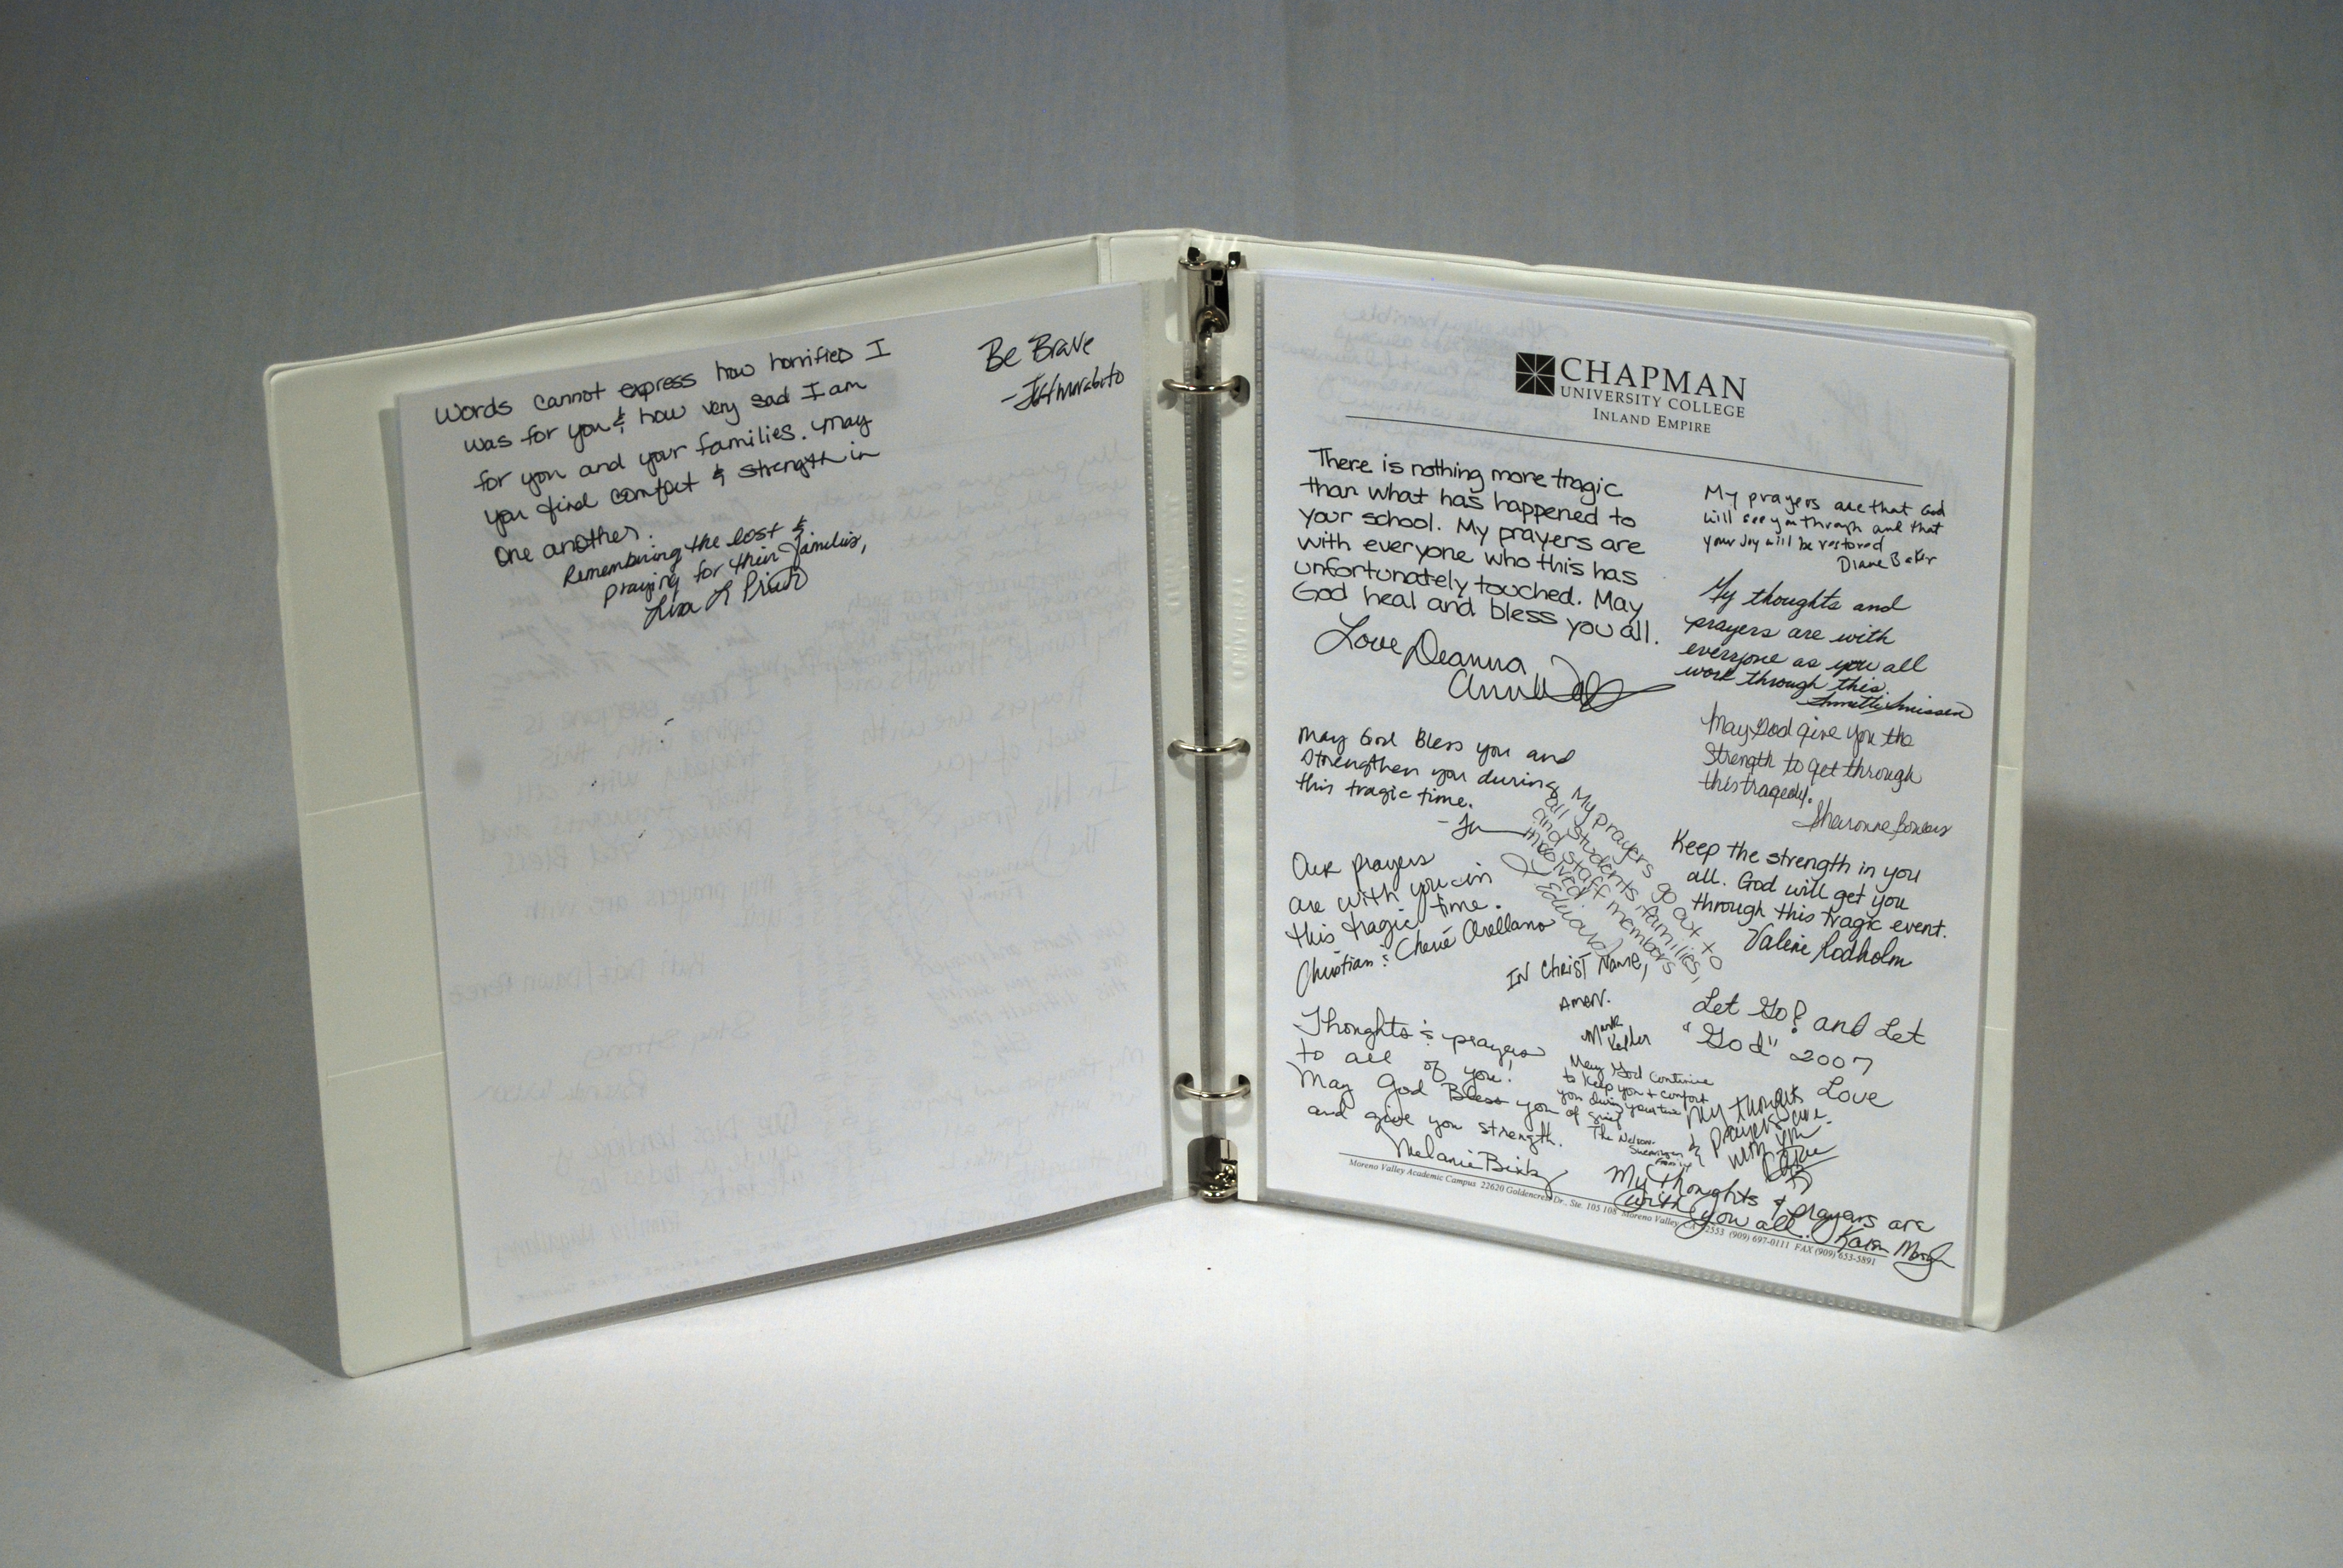 Words cannot express how horrified I
was for you & how very sad I am
for you and your families. May
you find comfort & strength in
one another.
Remembering the lost &
praying for their families,
Lisa L
Be Brave
CHAPMAN
UNIVERSITY COLLEGE
INLAND EMPIRE
There is nothing more tragic
than what has happened to
your school. My prayers are
with everyone who this has
unfortunately touched. May
God heal and bless you all.
Love Deanna
My prayers are that God
will see you through and that
your Joy will be restored
Diane Baker
My thoughts and
prayers are with
everyone as you all
work through this.
May God give you the
Strength to get through
this tragedy.
Sharonne Bowers
May God Bless you and
Strengthen you during
this tragic time.
My prayers go out to
all students, families,
and staff members
involved.
Eduardo
Keep the strength in you
all. God will get you
through this tragic event.
Valerie Rodholm
Our prayers
are with you in
this tragic time.
Christian & Cherié Arellano
IN CHRIST NAME,
AMEN.
Mark
Keller
Let Go! and Let
"God" 2007
Love
Thoughts & prayers
to all of you!
May God Bless you
and give you strength.
Melanie Bixby
May God continue
to keep you & comfort
you during your time
of grief
The Nelson
My thoughts
& prayers are
with you
My thoughts & prayers are
with you all. Karen
Moreno Valley Academic Campus 22620 Goldencrest Dr., Ste. 105 108 Moreno Valley, CA 92553 (909) 697-0111 FAX (909) 653-5891